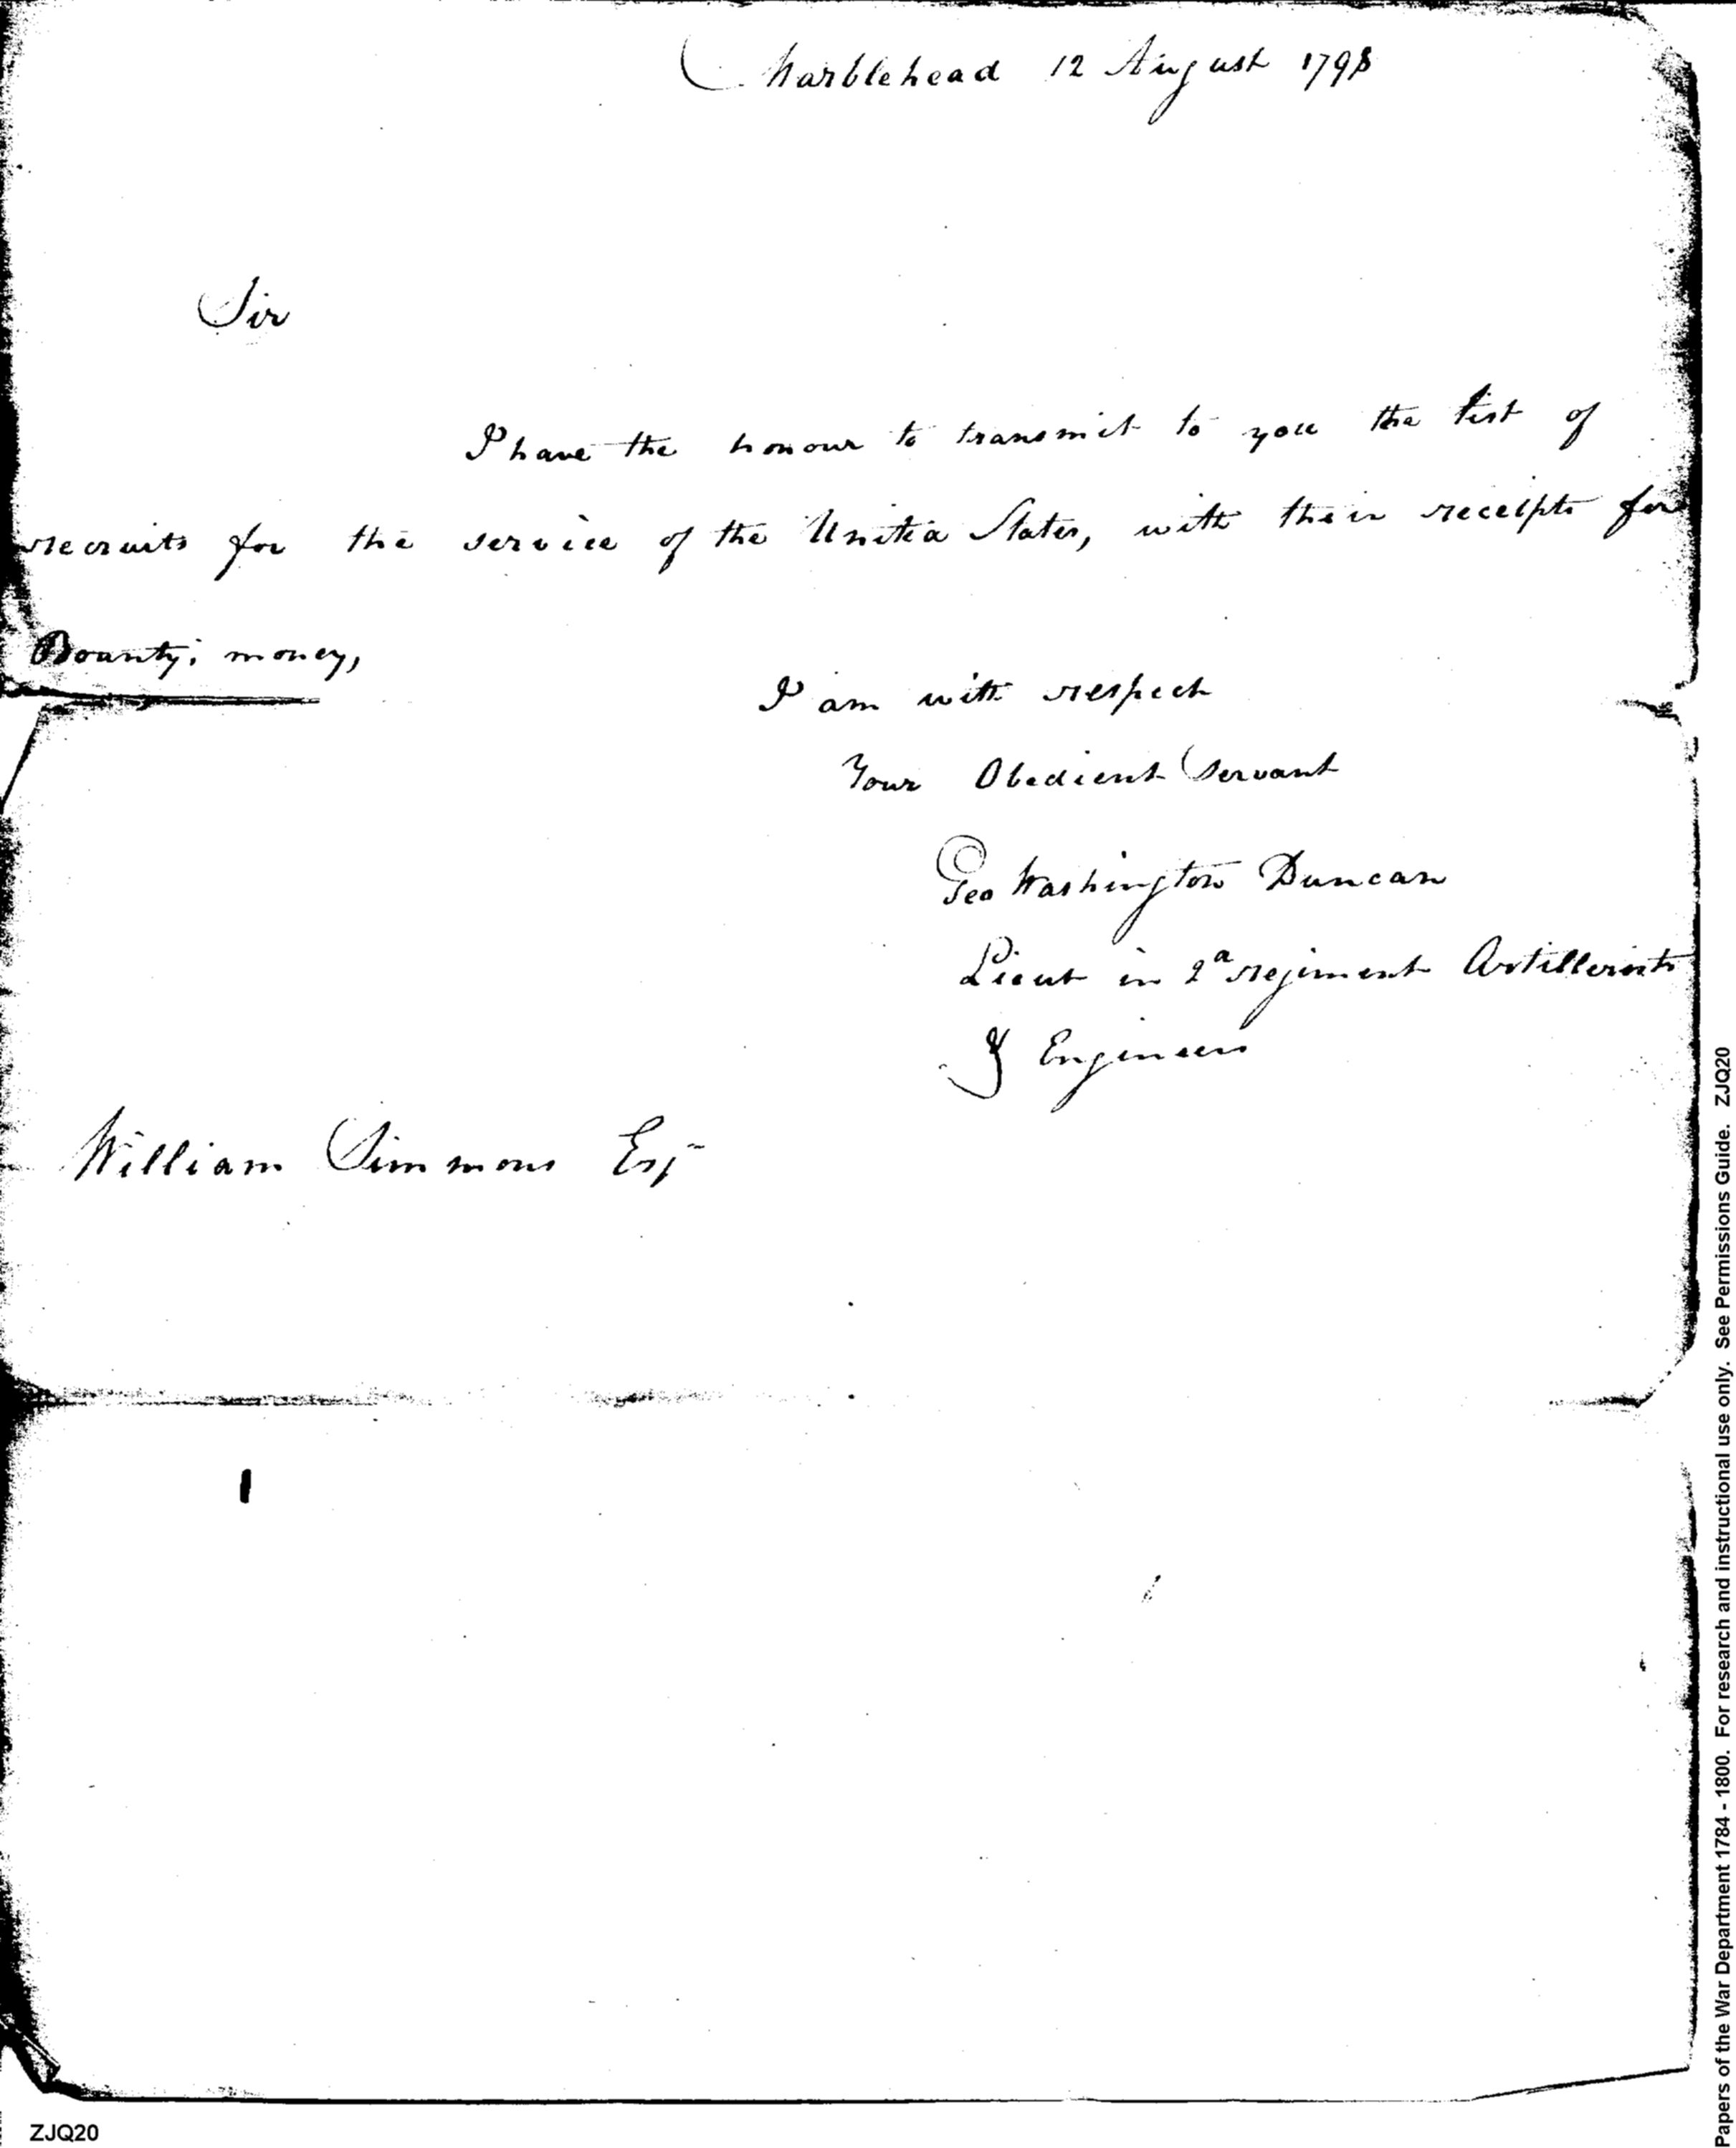 Marblehead 12 August 1798
Sir
I have the honour to transmit to you the list of
recruits for the service of the United States, with their receipts for
Bounty, money,
I am with respect
Your Obedient Servant
Geo Washington Duncan
Lieut in 2d regiment Artillerists
& Engineers
William Simmons Esqr
Papers of the War Department 1784 - 1800. For research and instructional use only. See Permissions Guide. ZJQ20
ZJQ20